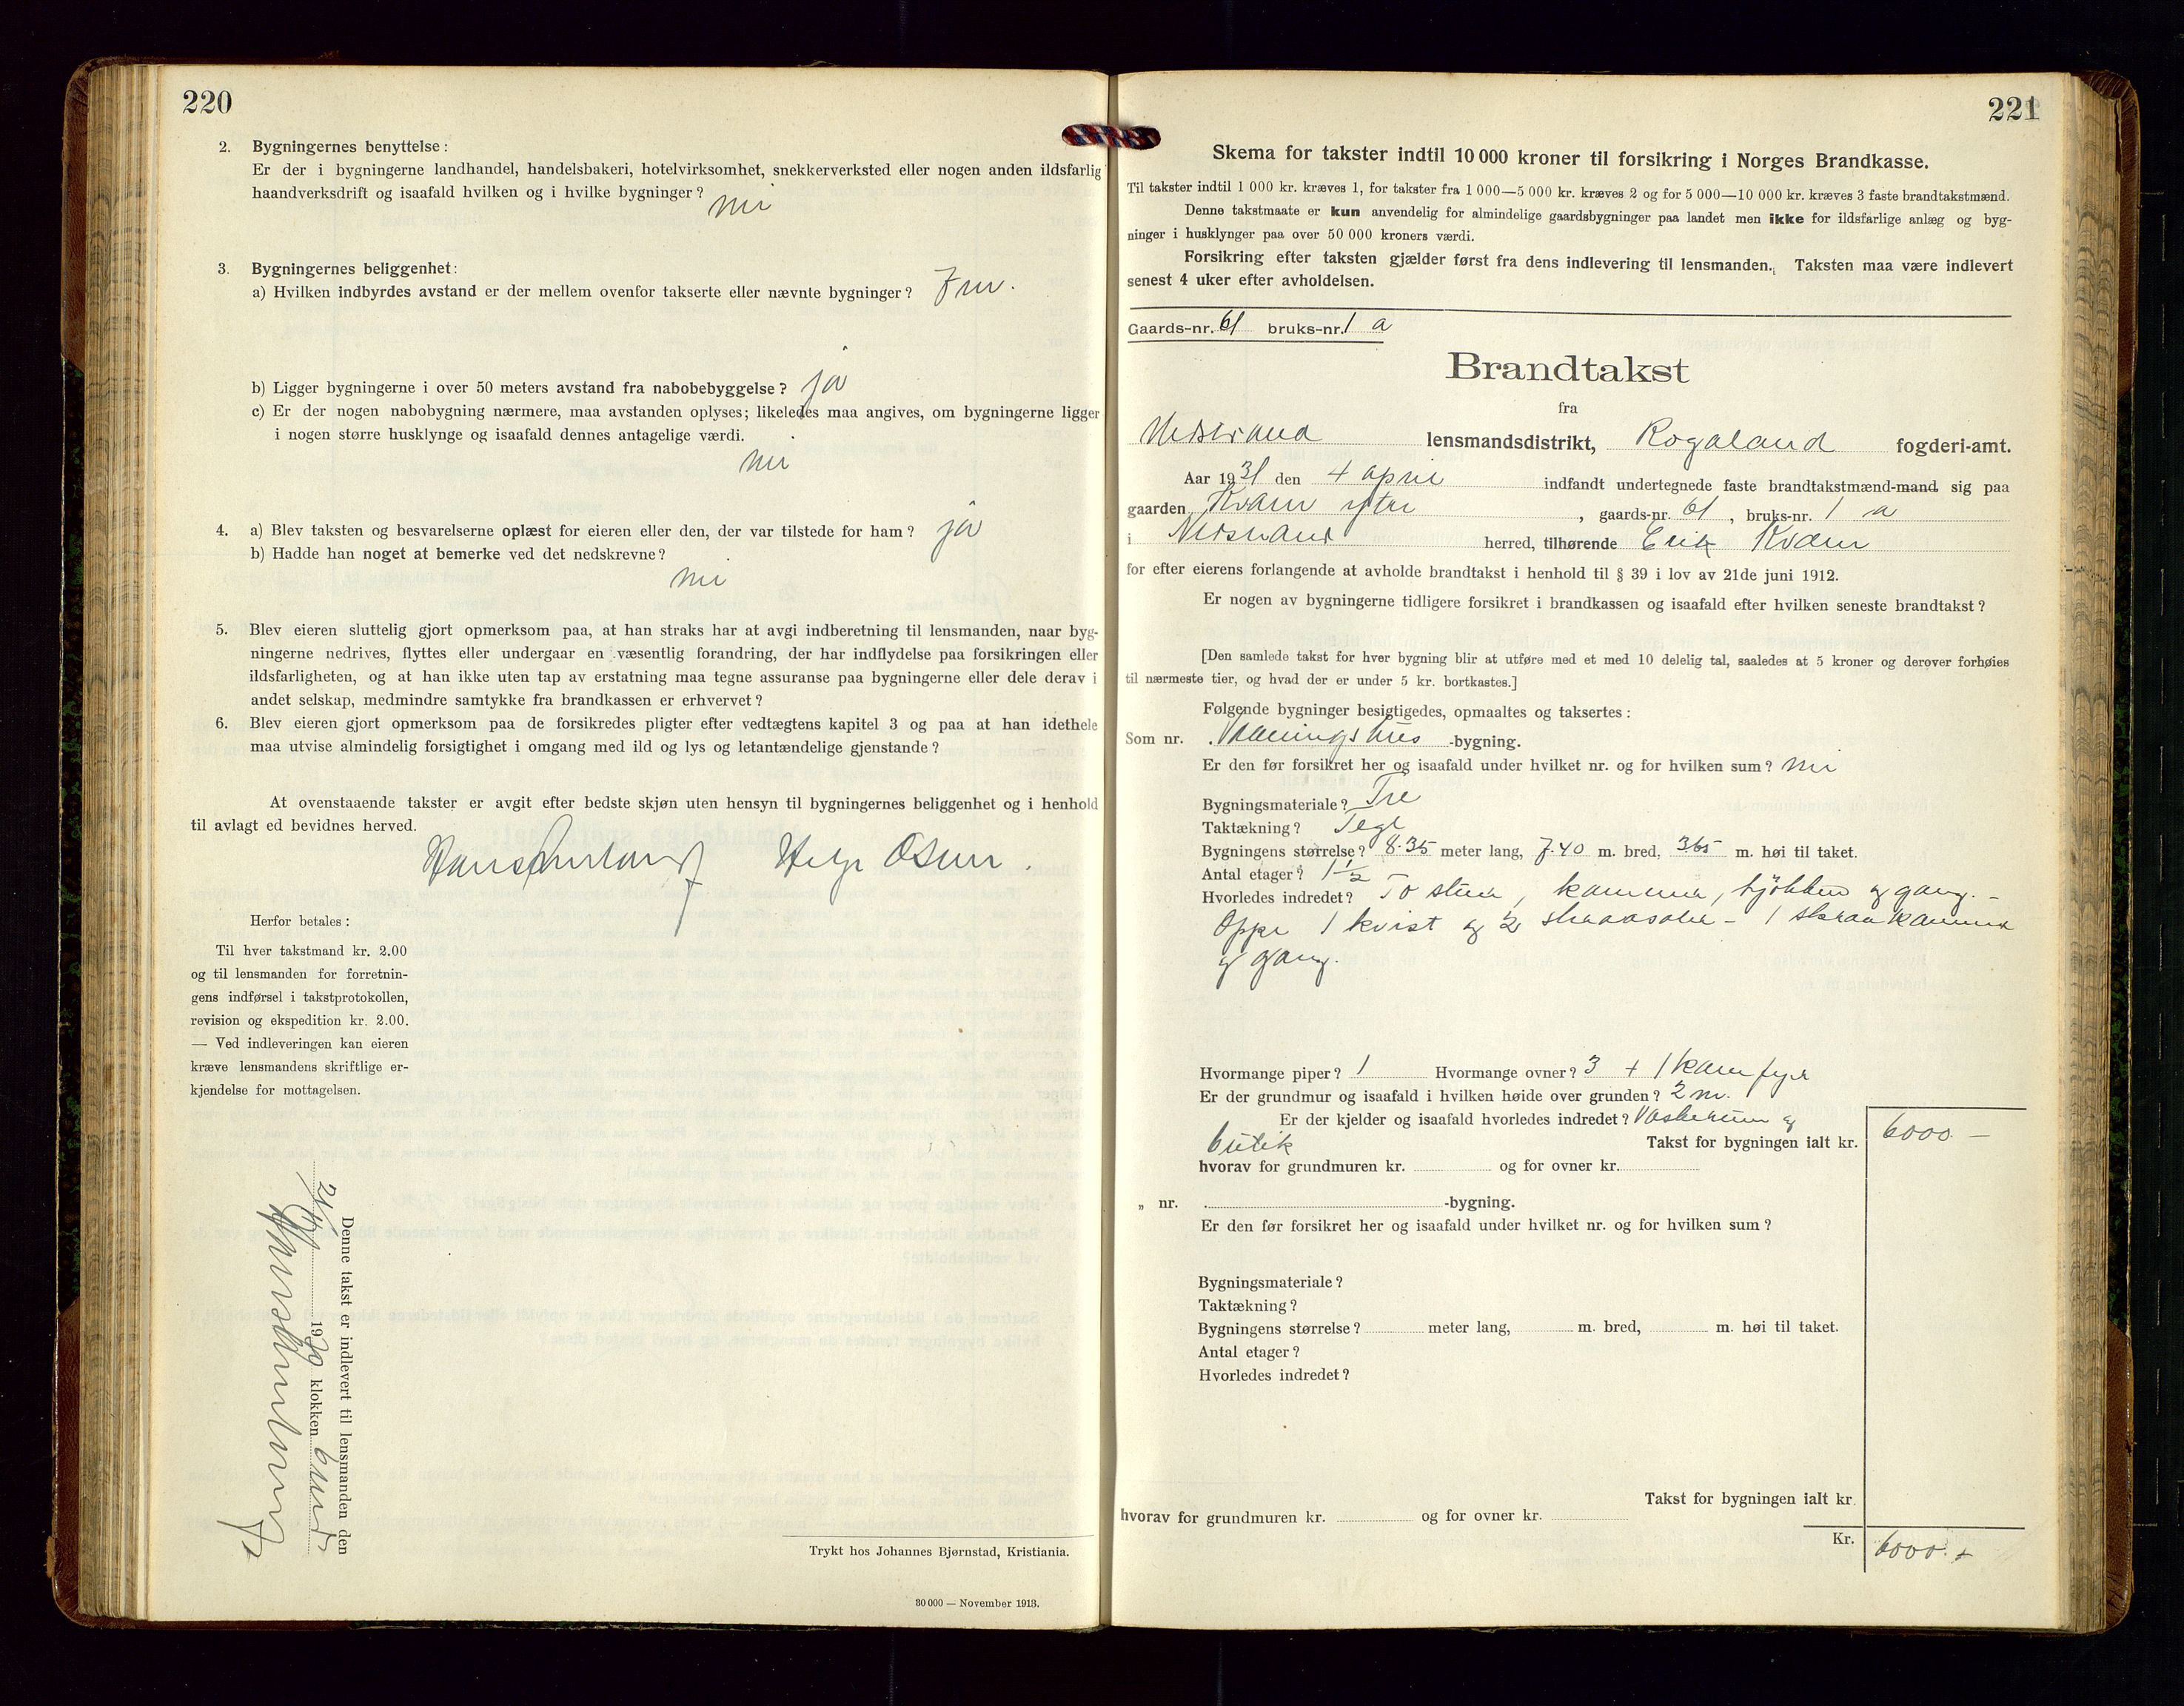 220
2. Bygningernes benyttelse:
Er der i bygningerne landhandel, handelsbakeri, hotelvirksomhet, snekkerverksted eller nogen anden ildsfarlig
haandverksdrift og isaafald hvilken og i hvilke bygninger? nei
3. Bygningernes beliggenhet:
a) Hvilken indbyrdes avstand er der mellem ovenfor takserte eller nævnte bygninger? 7 m.
b) Ligger bygningerne i over 50 meters avstand fra nabobebyggelse? ja
c) Er der nogen nabobygning nærmere, maa avstanden oplyses; likeledes maa angives, om bygningerne ligger
i nogen større husklynge og isaafald dennes antagelige værdi.
nei
4. a) Blev taksten og besvarelserne oplæst for eieren eller den, der var tilstede for ham? ja
b) Hadde han noget at bemerke ved det nedskrevne?
nei
5. Blev eieren sluttelig gjort opmerksom paa, at han straks har at avgi indberetning til lensmanden, naar byg-
ningerne nedrives, flyttes eller undergaar en væsentlig forandring, der har indflydelse paa forsikringen eller
ildsfarligheten, og at han ikke uten tap av erstatning maa tegne assuranse paa bygningerne eller dele derav i
andet selskap, medmindre samtykke fra brandkassen er erhvervet?
6. Blev eieren gjort opmerksom paa de forsikredes pligter efter vedtægtens kapitel 3 og paa at han idethele
maa utvise almindelig forsigtighet i omgang med ild og lys og letantændelige gjenstande?
At ovenstaaende takster er avgit efter bedste skjøn uten hensyn til bygningernes beliggenhet og i henhold
til avlagt ed bevidnes herved.
Helge Osen.
Herfor betales:
Til hver takstmand kr. 2.00
og til lensmanden for forretnin-
gens indførsel i takstprotokollen,
revision og ekspedition kr. 2.00.
— Ved indleveringen kan eieren
kræve lensmandens skriftlige er-
kjendelse for mottagelsen.
Denne takst er indlevert til lensmanden den
1930 klokken
Trykt hos Johannes Bjørnstad, Kristiania.
30 000 — November 1913.
221
Skema for takster indtil 10 000 kroner til forsikring i Norges Brandkasse.
Til takster indtil 1 000 kr. kræves 1, for takster fra 1 000—5 000 kr. kræves 2 og for 5 000—10 000 kr. kræves 3 faste brandtakstmænd.
Denne takstmaate er kun anvendelig for almindelige gaardsbygninger paa landet men ikke for ildsfarlige anlæg og byg-
ninger i husklynger paa over 50 000 kroners værdi.
Forsikring efter taksten gjælder først fra dens indlevering til lensmanden. Taksten maa være indlevert
senest 4 uker efter avholdelsen.
Gaards-nr. 61 bruks-nr. 1 a
Brandtakst
fra
Nedstrand lensmandsdistrikt, Rogaland fogderi-amt.
Aar 1931 den 4 april indfandt undertegnede faste brandtakstmænd-mand sig paa
gaarden Kvam ytre, gaards-nr. 61, bruks-nr. 1 a
i Nedstrand herred, tilhørende Erik Kvam
for efter eierens forlangende at avholde brandtakst i henhold til § 39 i lov av 21de juni 1912.
Er nogen av bygningerne tidligere forsikret i brandkassen og isaafald efter hvilken seneste brandtakst?
[Den samlede takst for hver bygning blir at utføre med et med 10 delelig tal, saaledes at 5 kroner og derover forhøies
til nærmeste tier, og hvad der er under 5 kr. bortkastes.]
Følgende bygninger besigtigedes, opmaaltes og taksertes:
Som nr. Vaaningshus -bygning.
Er den før forsikret her og isaafald under hvilket nr. og for hvilken sum? nei
Bygningsmateriale? Tre
Taktækning? Tegl
Bygningens størrelse? 8.35 meter lang, 7.40 m. bred, 3.65 m. høi til taket.
Antal etager? 1 1/2
Hvorledes indredet? To stuer, kammer, kjökken og gang. -
Oppe 1 kvist og 2 - 1 skraakammer
og gang.
Hvormange piper? 1 Hvormange ovner? 3 + 1 komfyr
Er der grundmur og isaafald i hvilken høide over grunden? 2 m.
Er der kjelder og isaafald hvorledes indredet? Vaskerum og
butik Takst for bygningen ialt kr. 6000 —
hvorav for grundmuren kr. og for ovner kr.
„ nr. -bygning.
Er den før forsikret her og isaafald under hvilket nr. og for hvilken sum?
Bygningsmateriale?
Taktækning?
Bygningens størrelse? meter lang, m. bred, m. høi til taket.
Antal etager?
Hvorledes indredet?
Takst for bygningen ialt kr.
hvorav for grundmuren kr. og for ovner kr.
Kr. 6000.